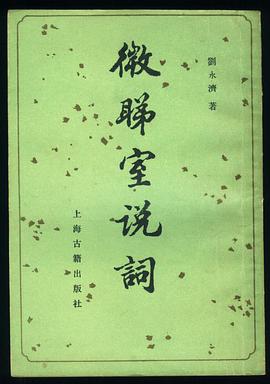 劉永濟 著
微睇室说詞
上海古籍出版社